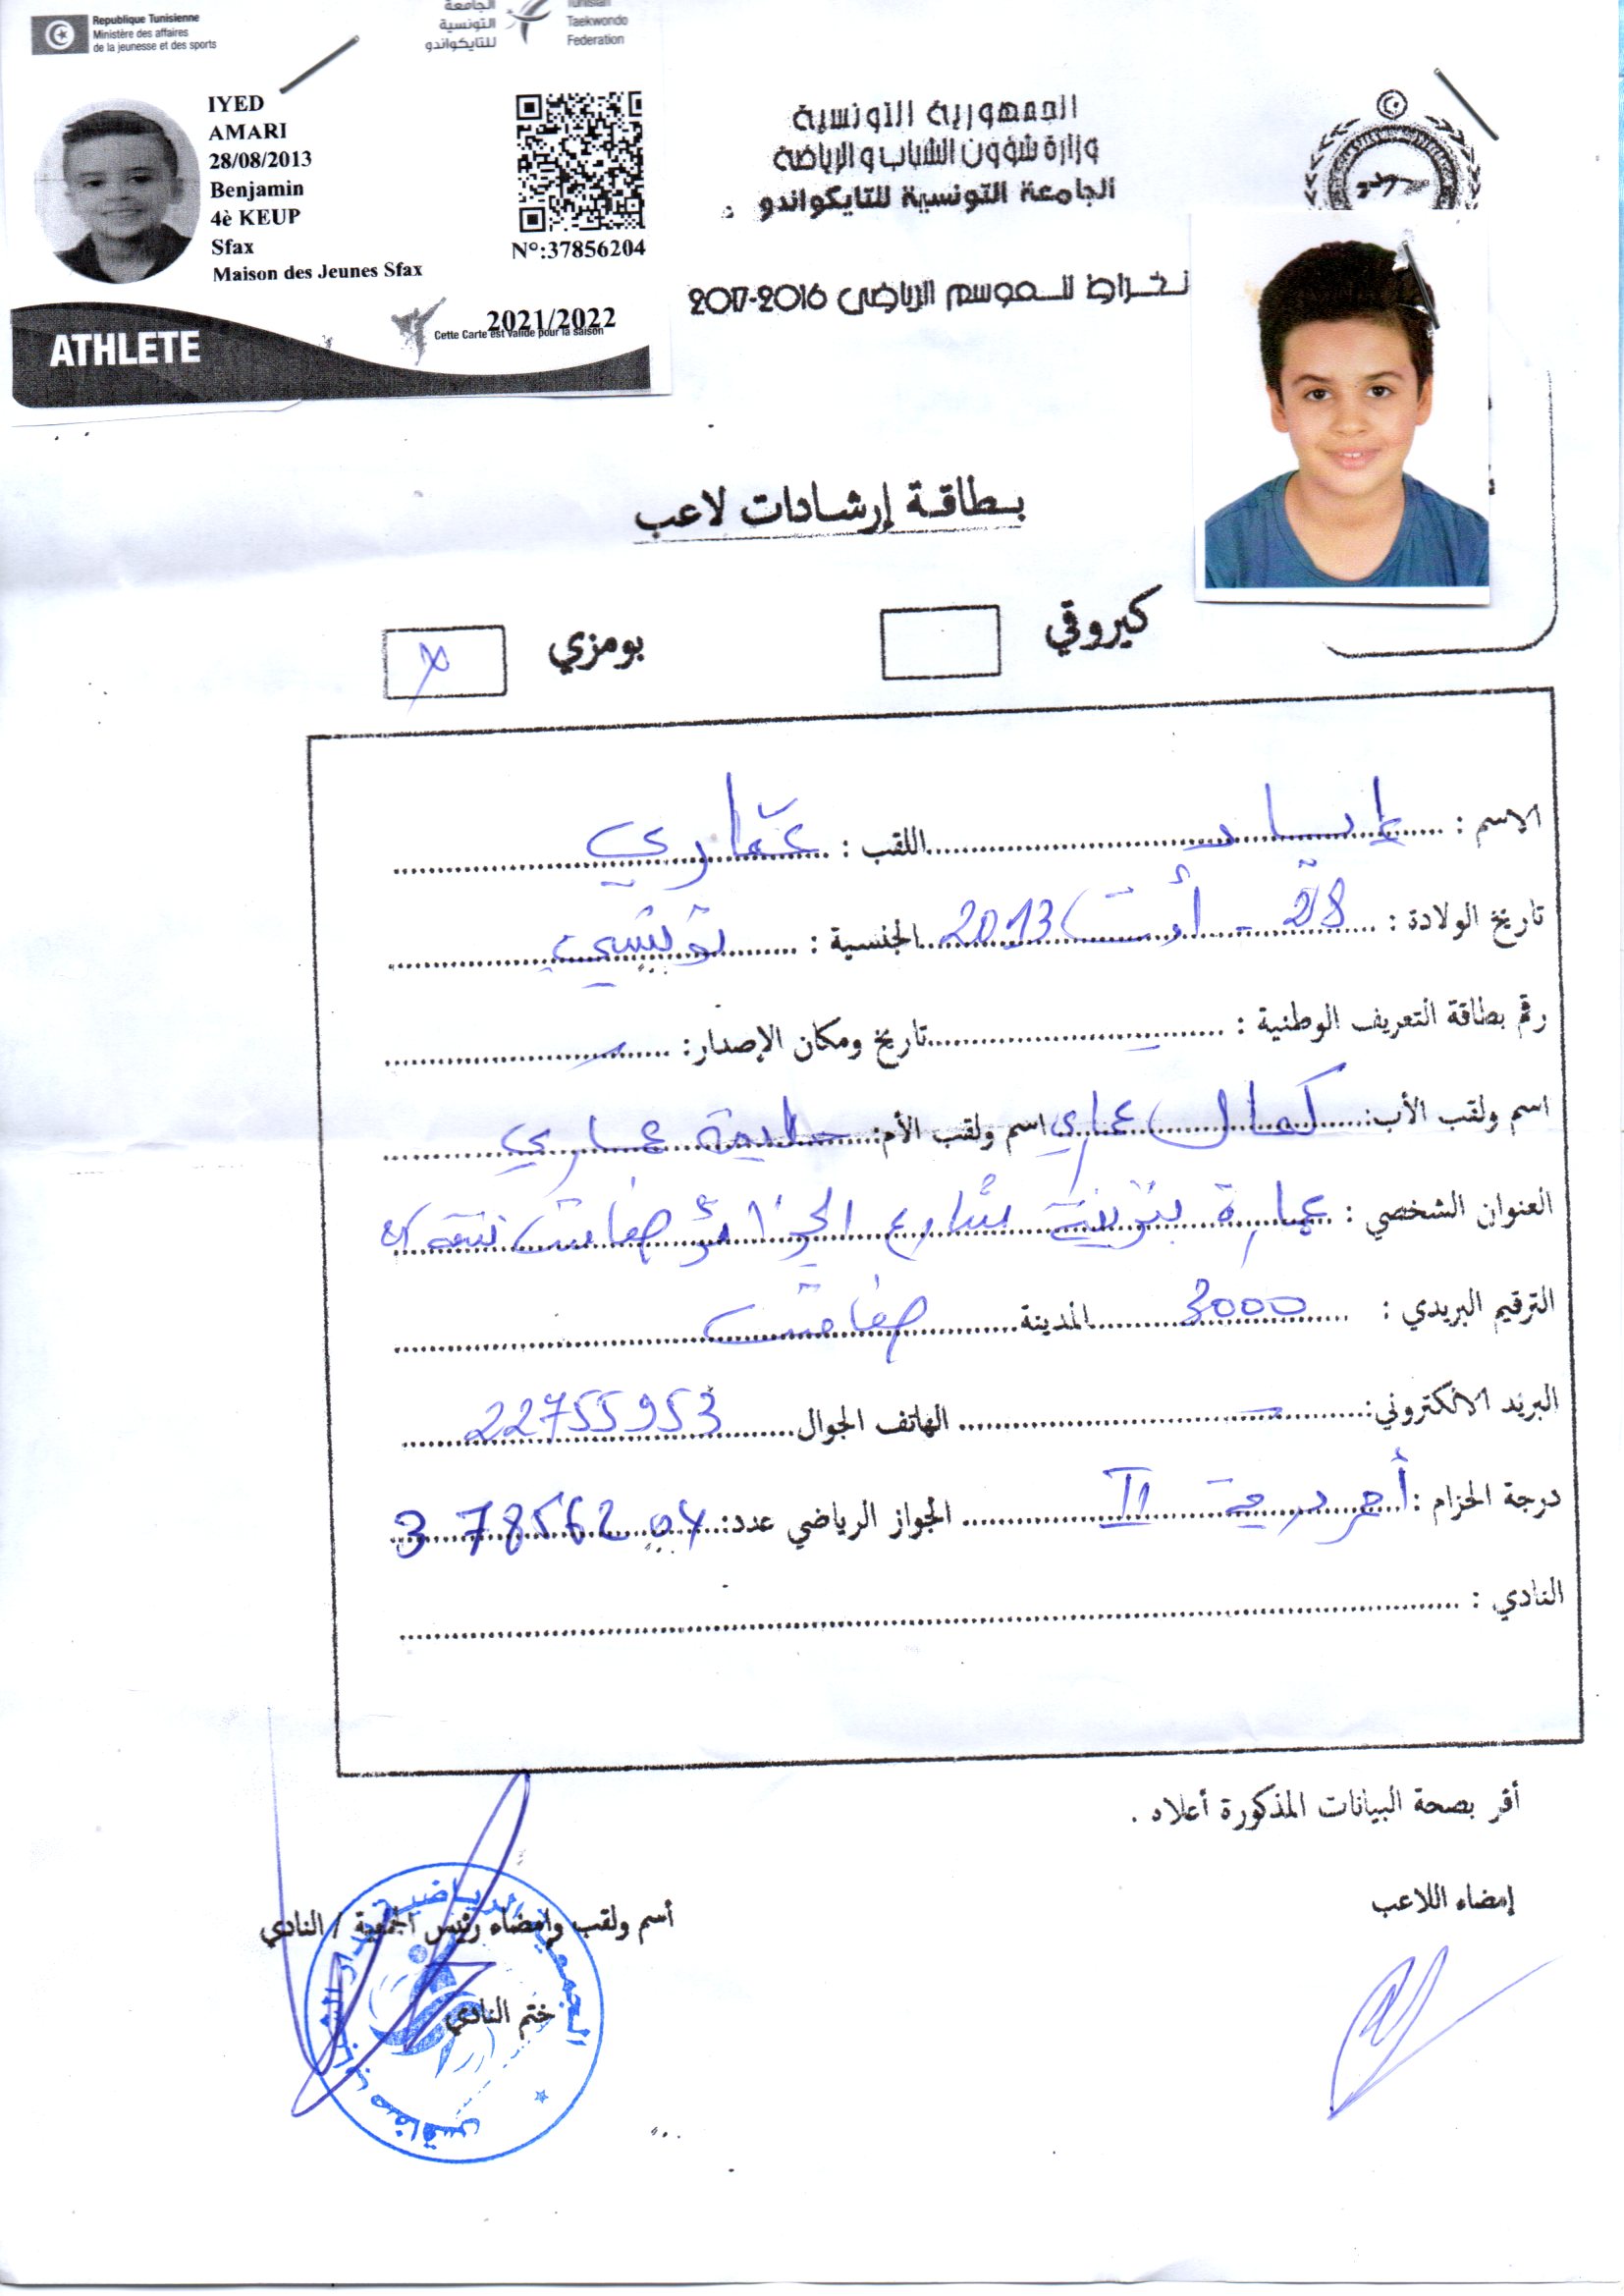 Republique Tunisienne
Ministère des affaires
de la jeunesse et des sports
الجامعة
التونسية
للتايكواندو
Tunisian
Taekwondo
Federation
IYED
AMARI
28/08/2013
Benjamin
4è KEUP
Sfax
Maison des Jeunes Sfax
N°:37856204
2021/2022
Cette Carte est valide pour la saison
ATHLETE
الجمهورية التونسية
وزارة شؤون الشباب والرياضة
الجامعة التونسية للتايكواندو
نخراط للموسم الرياضي 2016-2017
بطاقة إرشادات لاعب
كيروقي
بومزي X
الاسم : إياد اللقب : عمّاري
تاريخ الولادة : 28 - أوت 2013 الجنسية : تونسي
رقم بطاقة التعريف الوطنية : - تاريخ ومكان الإصدار: -
اسم ولقب الأب: كمال عماري اسم ولقب الأم: عماري
العنوان الشخصي : عمارة شارع الجزائر صفاقس شقة
الترقيم البريدي : 3000 المدينة صفاقس
البريد الالكتروني: - الهاتف الجوال 22755953
درجة الحزام : أحمر درجة II الجواز الرياضي عدد: 37856204
النادي :
أقر بصحة البيانات المذكورة أعلاه .
إمضاء اللاعب
أسم ولقب وإمضاء رئيس الجمعية / النادي
ختم النادي
الجمعية الرياضية بدار الشباب صفاقس